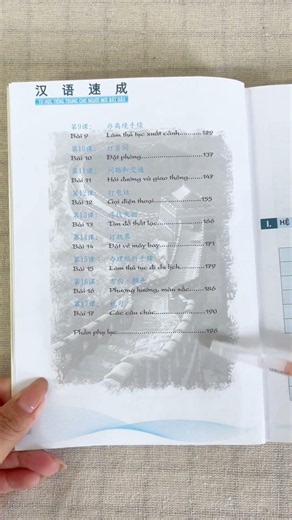 汉语速成
TỰ HỌC TIẾNG TRUNG CHO NGƯỜI MỚI BẮT ĐẦU
第9课: 办离境手续
Bài 9 Làm thủ tục xuất cảnh 129
第10课: 订房间
Bài 10 Đặt phòng 137
第11课: 问路和交通
Bài 11 Hỏi đường và giao thông 147
第12课: 打电话
Bài 12 Gọi điện thoại 155
第13课:
Bài 13 Tìm đồ thất lạc 166
第14课: 订机票
Bài 14 Đặt vé máy bay 171
第15课: 办理旅行手续
Bài 15 Làm thủ tục đi du lịch 179
第16课: 方向、颜色
Bài 16 Phương hướng, màu sắc 186
第17课:
Bài 17 Các câu chúc 190
Phần phụ lục 196
I. HỆ